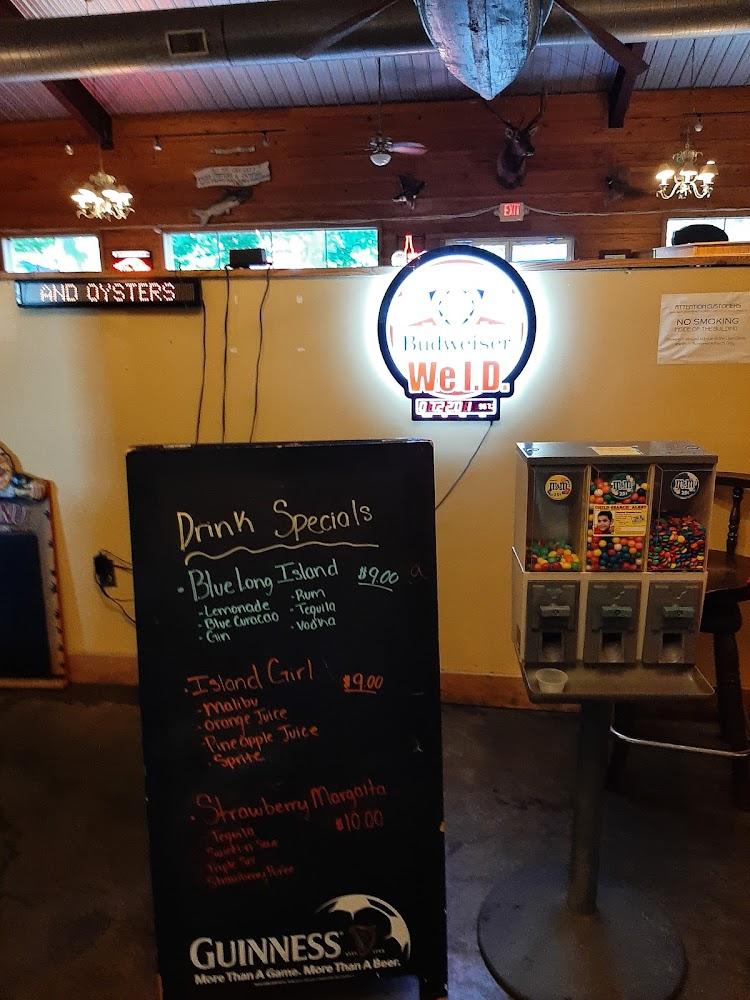 EXIT
AND OYSTERS
Budweiser
We I.D.
ATTENTION CUSTOMERS
NO SMOKING
INSIDE OF THE BUILDING
Drink Specials
• Blue Long Island $9.00
- Lemonade
- Blue Curacao
- Gin
- Rum
- Tequila
- Vodka
• Island Girl $9.00
- Malibu
- Orange Juice
- Pineapple Juice
- Sprite
• Strawberry Margaita $10.00
Tequila
Triple Sec
GUINNESS
More Than A Game. More Than A Beer.
m&m's
m&m's
m&m's
CHILD SEARCH ALERT